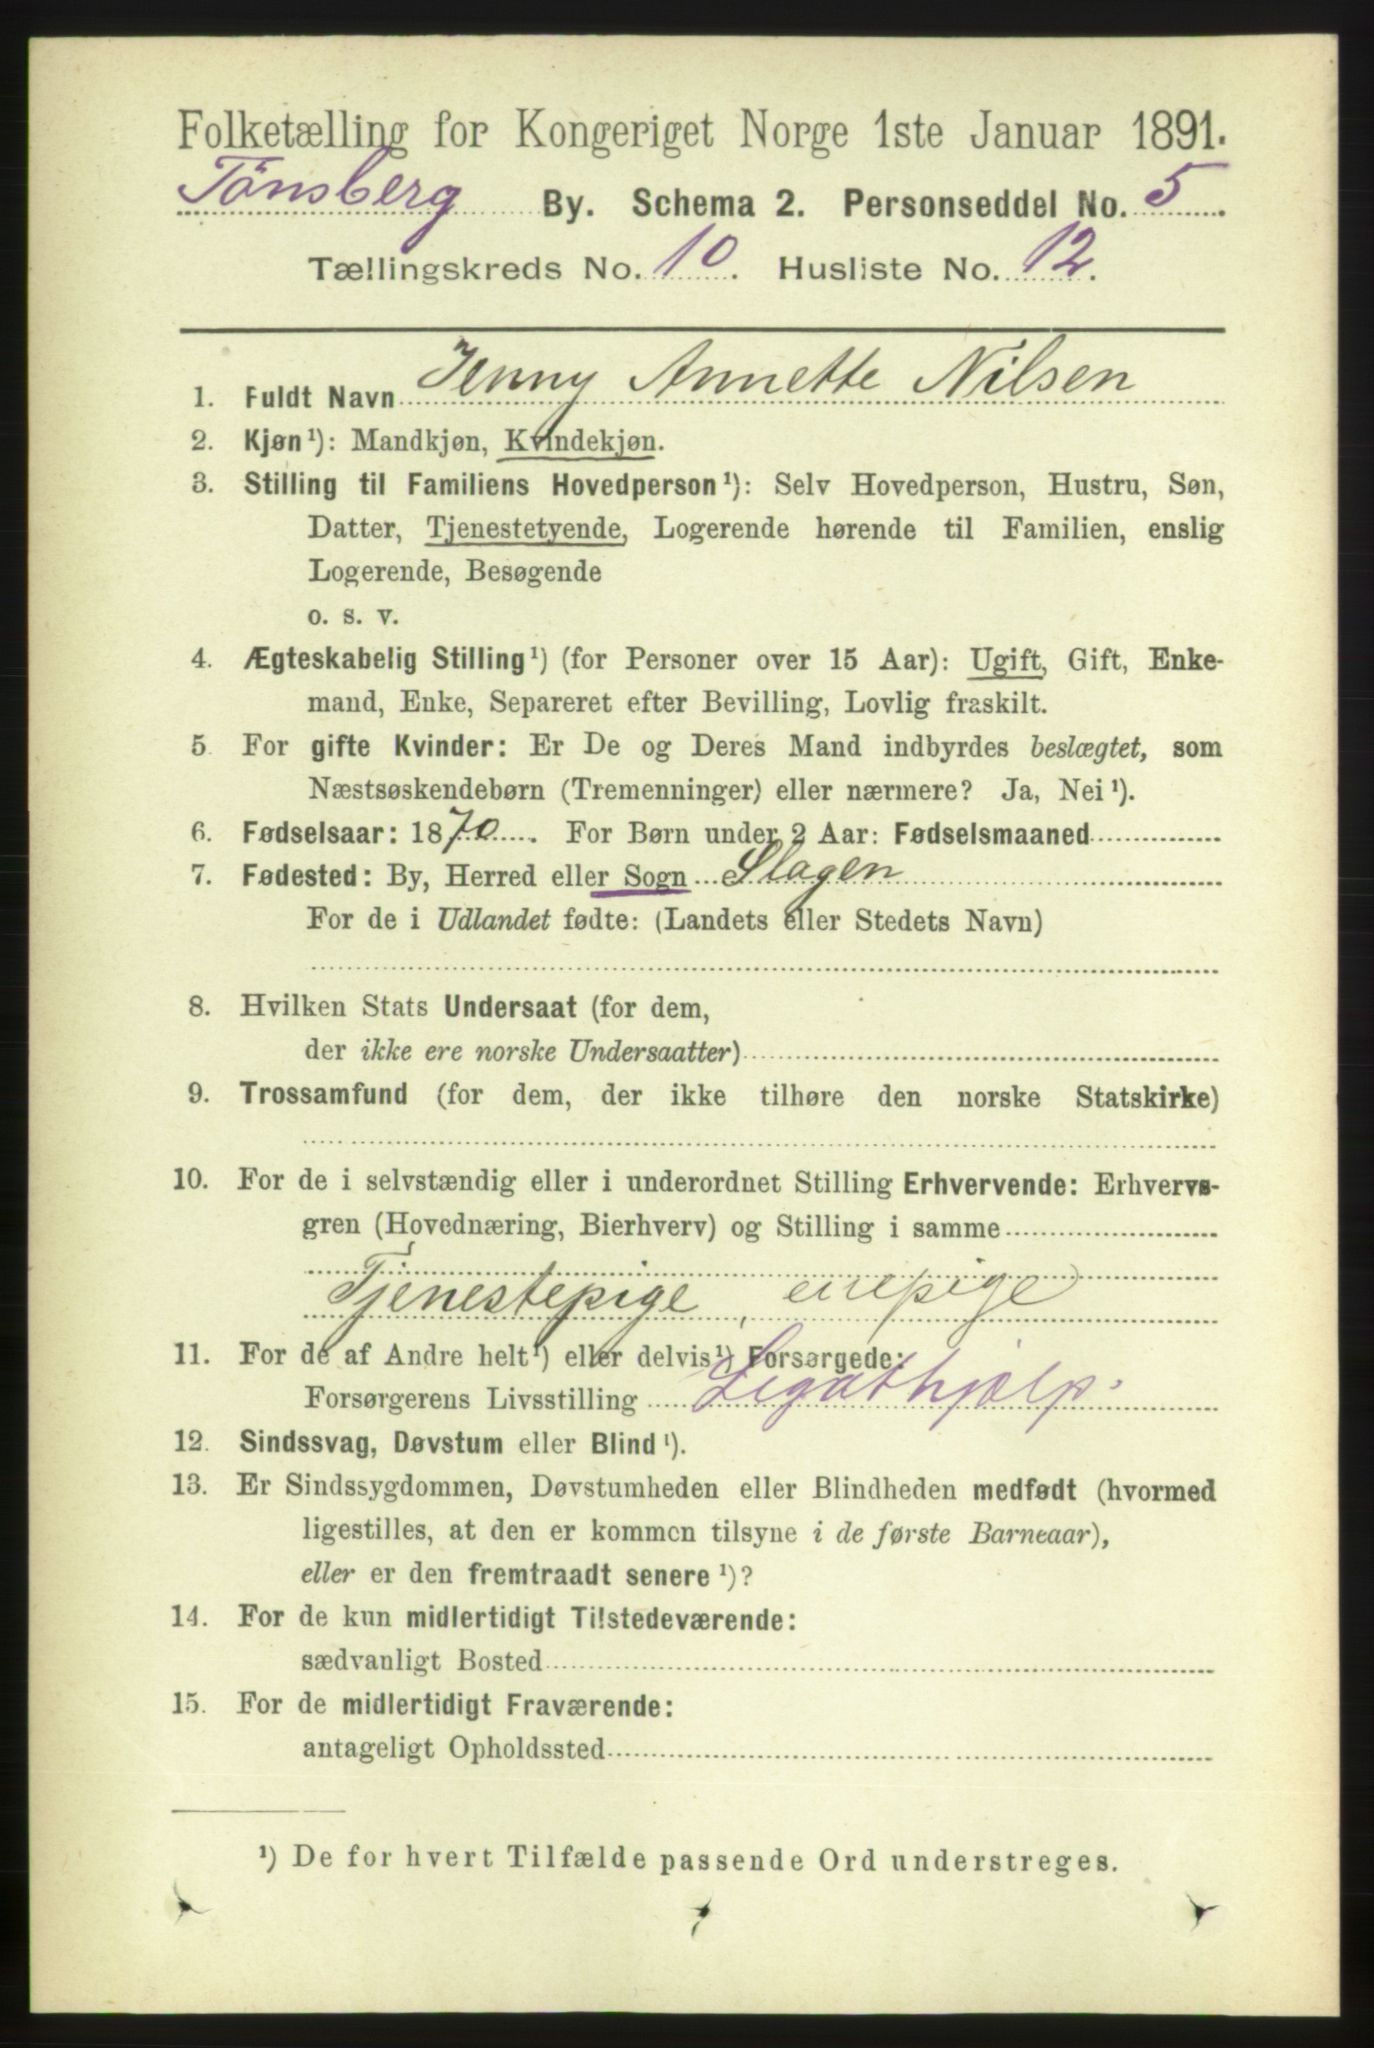 Folketælling for Kongeriget Norge 1ste Januar 1891.
Tönsberg By. Schema 2. Personseddel No. 5
Tællingskreds No. 10. Husliste No. 12.
1. Fuldt Navn Jenny Annette Nilsen
2. Kjøn¹): Mandkjøn, Kvindekjøn.
3. Stilling til Familiens Hovedperson¹): Selv Hovedperson, Hustru, Søn,
Datter, Tjenestetyende, Logerende hørende til Familien, enslig
Logerende, Besøgende
o. s. v.
4. Ægteskabelig Stilling¹) (for Personer over 15 Aar): Ugift, Gift, Enke-
mand, Enke, Separeret efter Bevilling, Lovlig fraskilt.
5. For gifte Kvinder: Er De og Deres Mand indbyrdes beslægtet, som
Næstsøskendebørn (Tremenninger) eller nærmere? Ja, Nei¹).
6. Fødselsaar: 1870. For Børn under 2 Aar: Fødselsmaaned
7. Fødested: By, Herred eller Sogn Slagen
For de i Udlandet fødte: (Landets eller Stedets Navn)
8. Hvilken Stats Undersaat (for dem,
der ikke ere norske Undersaatter)
9. Trossamfund (for dem, der ikke tilhøre den norske Statskirke)
10. For de i selvstændig eller i underordnet Stilling Erhvervende: Erhvervs-
gren (Hovednæring, Bierhverv) og Stilling i samme
Tjenestepige, enepige
11. For de af Andre helt¹) eller delvis¹) Forsørgede:
Forsørgerens Livsstilling Legathjælp.
12. Sindssvag, Døvstum eller Blind¹).
13. Er Sindssygdommen, Døvstumheden eller Blindheden medfødt (hvormed
ligestilles, at den er kommen tilsyne i de første Barneaar),
eller er den fremtraadt senere¹)?
14. For de kun midlertidigt Tilstedeværende:
sædvanligt Bosted
15. For de midlertidigt Fraværende:
antageligt Opholdssted
¹) De for hvert Tilfælde passende Ord understreges.